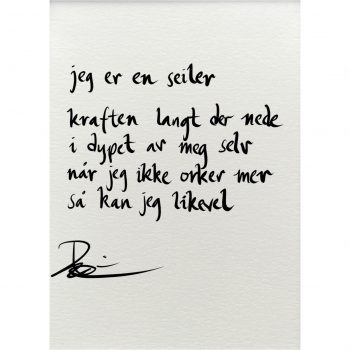 jeg er en seiler
kraften langt der nede
i dypet av meg selv
når jeg ikke orker mer
så kan jeg likevel